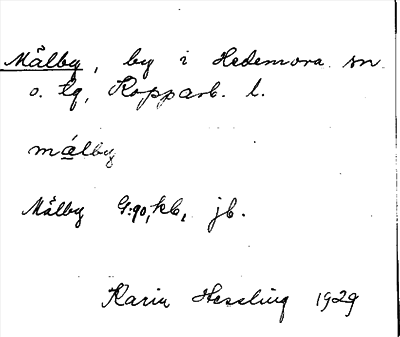 Målby, by i Hedemora sn
o. lg, Kopparb. l.
málby
Målby G:90, kb, jb.
Karin Hessling 1929